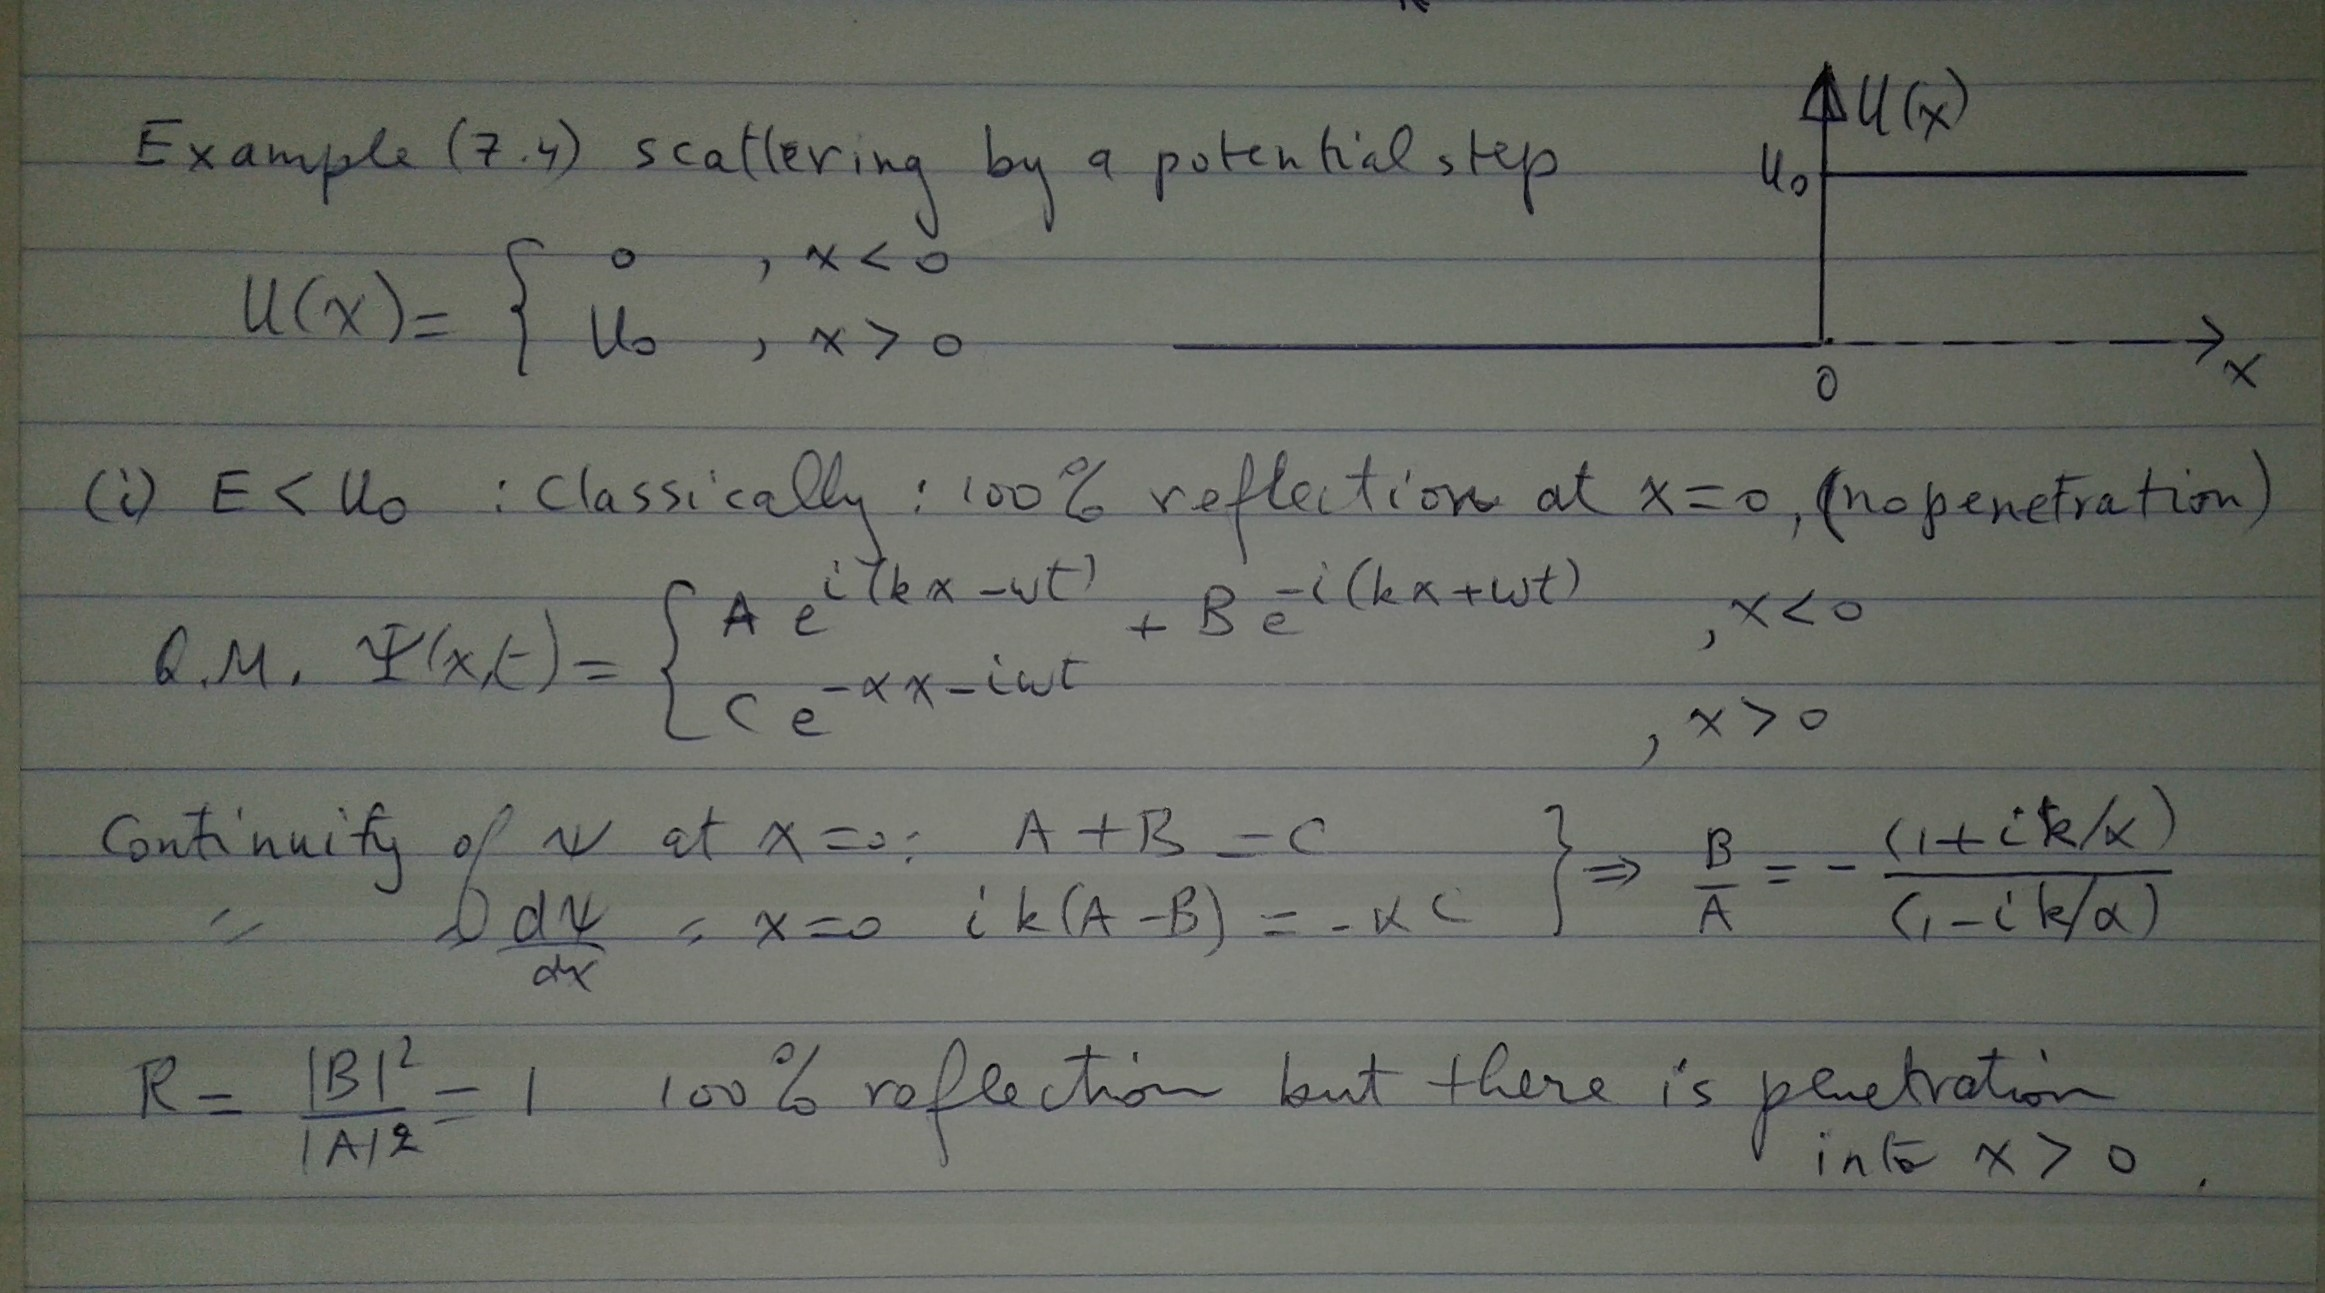 Example (7.4) scattering by a potential step
U(x)
U₀
U(x) = { 0 , x < 0
U₀ , x > 0
0
x
(i) E < U₀ : Classically : 100% reflection at x=0, (no penetration)
Q.M. Ψ(x,t) = { A e^{i(kx-ωt)} + B e^{-i(kx+ωt)} , x<0
C e^{-αx-iωt} , x > 0
Continuity of ψ at x=0: A + B = C } ⇒ B/A = - (1+ik/α)/(1-ik/α)
〃 of dψ/dx 〃 x=0 ik(A-B) = -αC
R = |B|²/|A|² = 1 100% reflection but there is penetration
into x > 0.